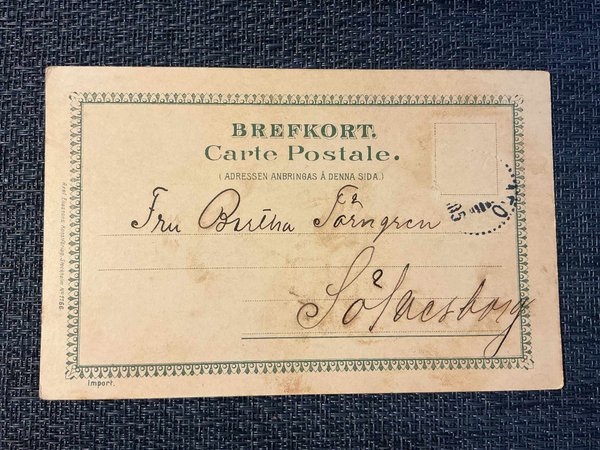 BREFKORT.
Carte Postale.
( ADRESSEN ANBRINGAS Å DENNA SIDA. )
Fru Bertha Törngren
Sölvesborg
Import.
Axel Eliassons Konstförlag, Stockholm Nº 1166